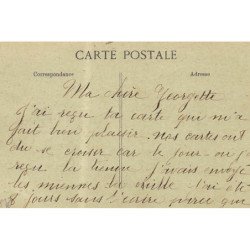 CARTE POSTALE
Correspondance Adresse
Ma chère Georgette
J'ai reçu ta carte qui m'a
fait bien plaisir. nos cartes ont
du se croiser car le jour ou j'
reçu la tienne j'avais envoyé
les miennes la veille. J'ai été
8 jours sans l'écrire parce que